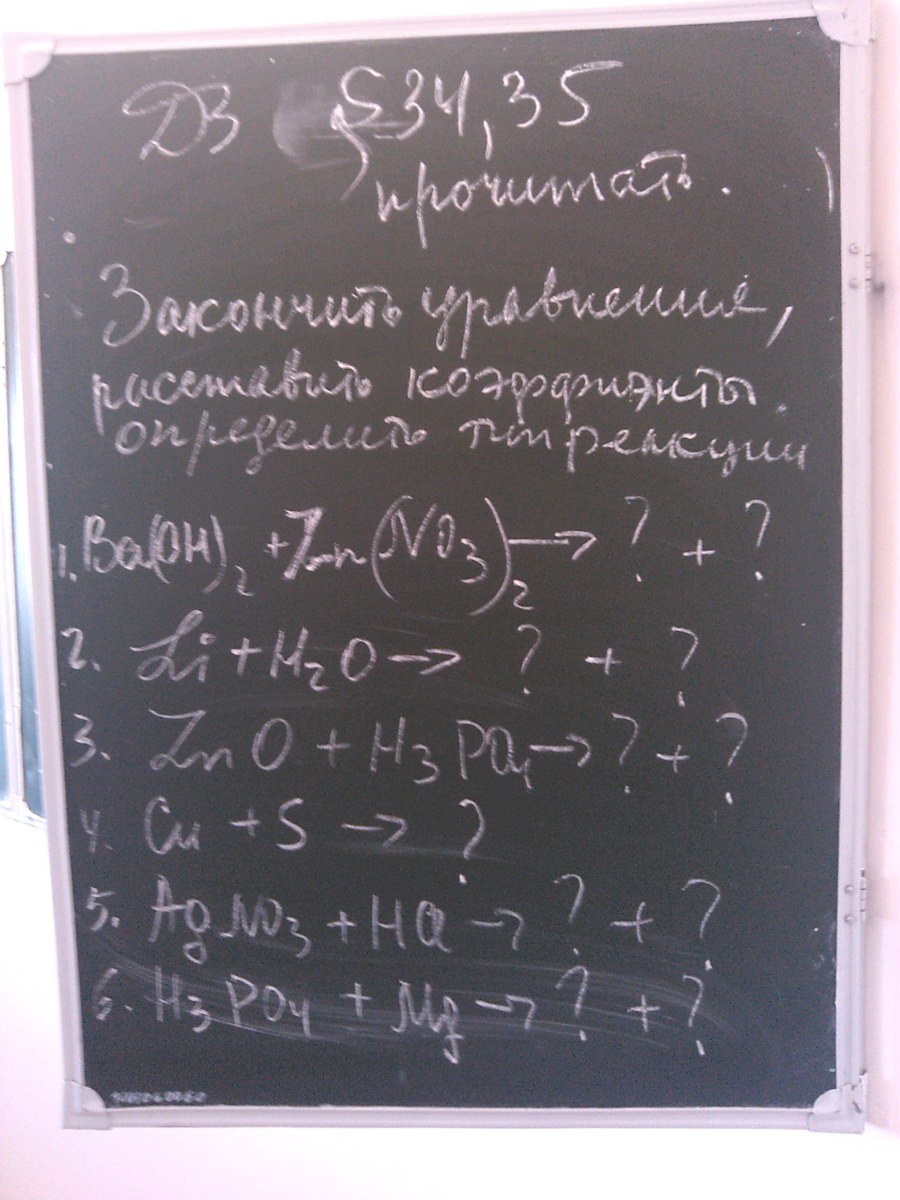 ДЗ §34,35
прочитать.
Закончить уравнения,
расставить коэффициэнты.
определить тип реакции
1. Ba(OH)₂ + Zn(NO₃)₂ → ? + ?
2. Li + H₂O → ? + ?
3. ZnO + H₃PO₄ → ? + ?
4. Cu + S → ?
5. AgNO₃ + HCl → ? + ?
6. H₃PO₄ + Mg → ? + ?